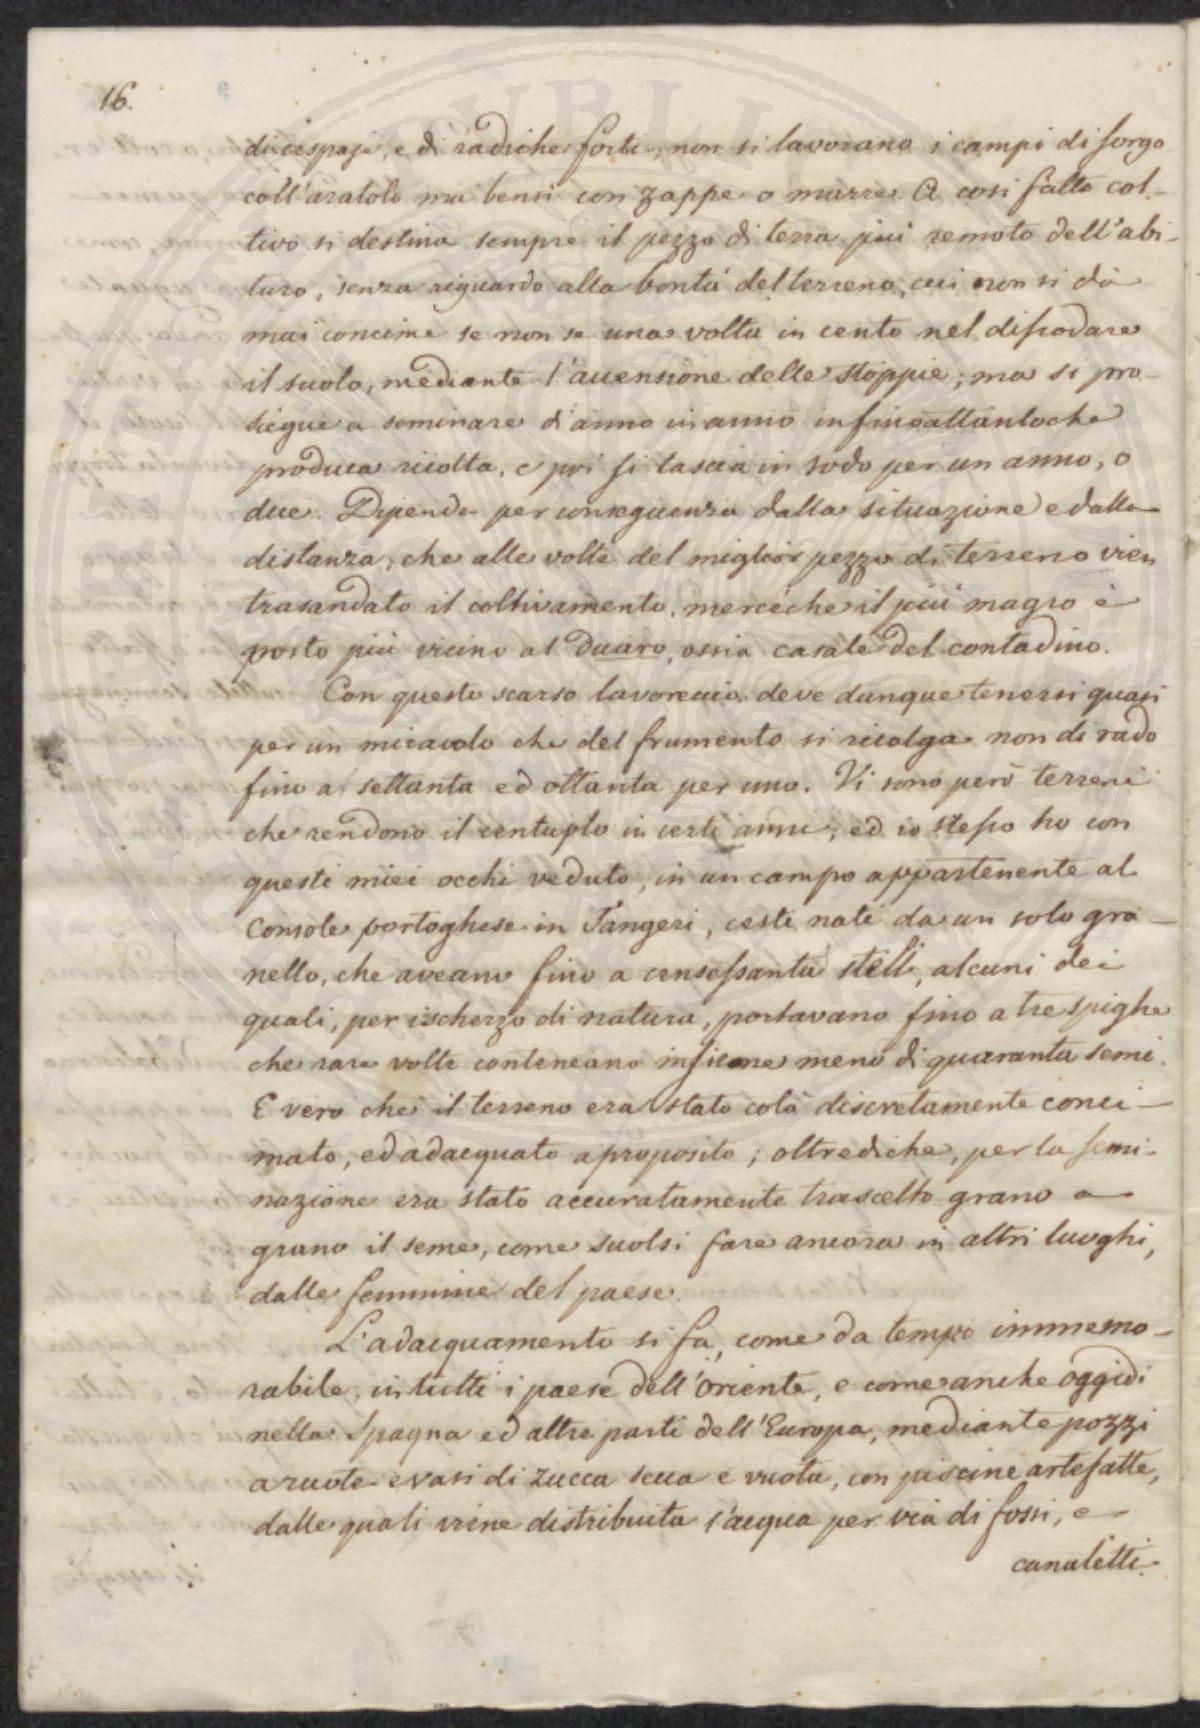 16.
di cespugi, e di radiche forti, non si lavorano i campi di sorgo
coll'aratolo ma bensi con zappe o marre. A cosi fatto col-
tivo si destina sempre il pezzo di terra piú remoto dell'abi-
turo, senza riguardo alla bontà del terreno, cui non si dà
mai concime se non se una volta in cento nel dissodare
il suolo, mediante l'accensione delle stoppie; ma si pro-
siegue a seminare d'anno in anno infinoattantoche
produca ricolta, e poi si lascia in sodo per un anno, o
due. Dipende per conseguenza dalla situazione e dalla
distanza, che alle volte del miglior pezzo di terreno vien
trasandato il coltivamento, mercéche il piú magro è
posto più vicino al Duaro, ossia casale del contadino.
Con questo scarso lavoreccio deve dunque tenersi quasi
per un miracolo che del frumento si ricolga non di rado
fino a settanta ed ottanta per uno. Vi sono però terreni
che rendono il centuplo in certi anni; ed io stesso ho con
questi miei occhi veduto, in un campo appartenente al
Console portoghese in Tangeri, cesti nati da un solo gra-
nello, che aveano fino a censessanta steli, alcuni dei
quali, per ischerzo di natura, portavano fino a tre spighe
che rare volte conteneano insieme meno di quaranta semi.
E vero che il terreno era stato colà discretamente conci-
mato, ed adacquato a proposito; oltrediche, per la semi-
nazione era stato accuratamente trascelto grano a
grano il seme, come suolsi fare ancora in altri luoghi,
dalle femmine del paese.
L'adacquamento si fa, come da tempo immemo-
rabile, in tutti i paesi dell'Oriente, e come anche oggidi
nella Spagna ed altre parti dell'Europa, mediante pozzi
a ruote e vasi di zucca secca e vuota, con piscine artefatte,
dalle quali viene distribuita l'acqua per via di fossi, e
canaletti.